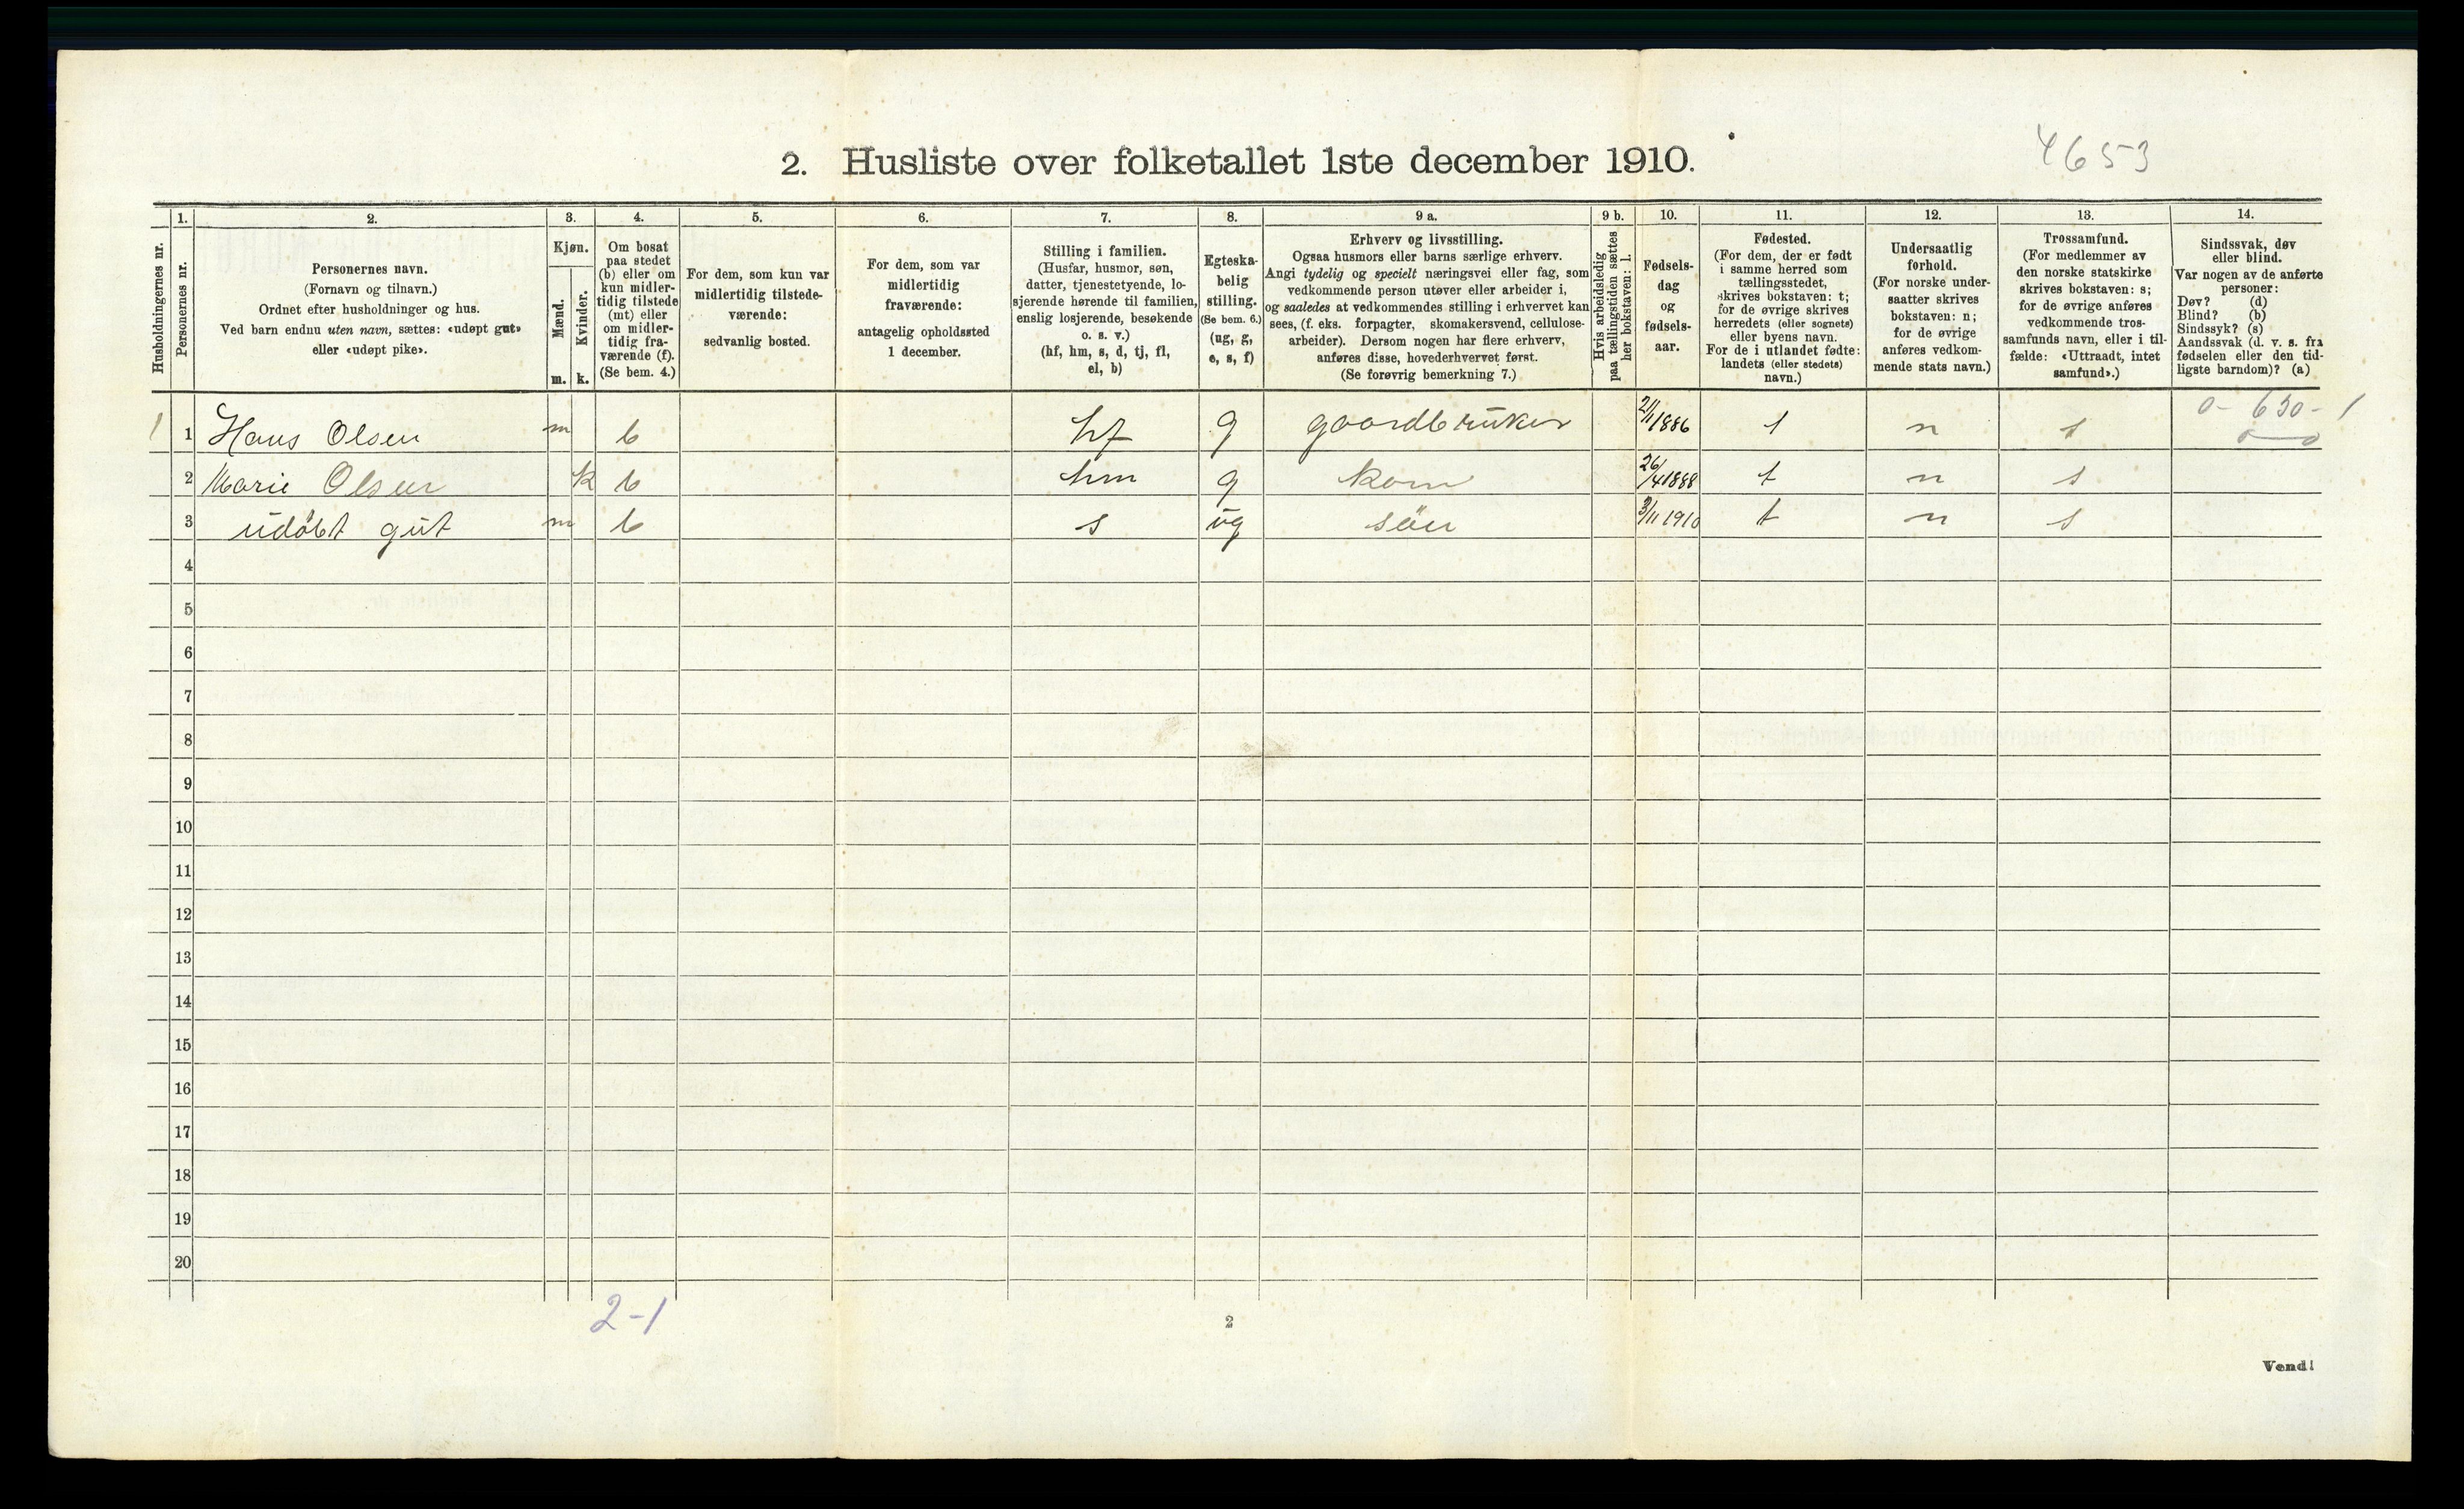 4653
2. Husliste over folketallet 1ste december 1910.
Husholdningernes nr.
1.
Personernes nr.
2.
Personernes navn.
(Fornavn og tilnavn.)
Ordnet efter husholdninger og hus.
Ved barn endnu uten navn, sættes: «udøpt gut»
eller «udøpt pike».
3.
Kjøn.
Mænd.
Kvinder.
m. k.
4.
Om bosat
paa stedet
(b) eller om
kun midler-
tidig tilstede
(mt) eller
om midler-
tidig fra-
værende (f).
(Se bem. 4.)
5.
For dem, som kun var
midlertidig tilstede-
værende:
sedvanlig bosted.
6.
For dem, som var
midlertidig
fraværende:
antagelig opholdssted
1 december.
7.
Stilling i familien.
(Husfar, husmor, søn,
datter, tjenestetyende, lo-
sjerende hørende til familien,
enslig losjerende, besøkende
o. s. v.)
(hf, hm, s, d, tj, fl,
el, b)
8.
Egteska-
belig
stilling.
(Se bem. 6.)
(ug, g,
e, s, f)
9 a.
Erhverv og livsstilling.
Ogsaa husmors eller barns særlige erhverv.
Angi tydelig og specielt næringsvei eller fag, som
vedkommende person utøver eller arbeider i,
og saaledes at vedkommendes stilling i erhvervet kan
sees, (f. eks. forpagter, skomakersvend, cellulose-
arbeider). Dersom nogen har flere erhverv,
anføres disse, hovederhvervet først.
(Se forøvrig bemerkning 7.)
9 b.
Hvis arbeidsledig
paa tællingstiden sættes
her bokstaven: l.
10.
Fødsels-
dag
og
fødsels-
aar.
11.
Fødested.
(For dem, der er født
i samme herred som
tællingsstedet,
skrives bokstaven: t;
for de øvrige skrives
herredets (eller sognets)
eller byens navn.
For de i utlandet fødte:
landets (eller stedets)
navn.)
12.
Undersaatlig
forhold.
(For norske under-
saatter skrives
bokstaven: n;
for de øvrige
anføres vedkom-
mende stats navn.)
13.
Trossamfund.
(For medlemmer av
den norske statskirke
skrives bokstaven: s;
for de øvrige anføres
vedkommende tros-
samfunds navn, eller i til-
fælde: «Uttraadt, intet
samfund».)
14.
Sindssvak, døv
eller blind.
Var nogen av de anførte
personer:
Døv? (d)
Blind? (b)
Sindssyk? (s)
Aandssvak (d. v. s. fra
fødselen eller den tid-
ligste barndom)? (a)
0 - 630 - 1
0 — 0
1 1 Hans Olsen m b hf g gaardbruker 2/11 1886 t n s
2 Marie Olsen k b hm g kone 26/4 1888 t n s
3 udøbt gut m b s ug søn 3/11 1910 t n s
4
5
6
7
8
9
10
11
12
13
14
15
16
17
18
19
20
2-1
2
Vend!